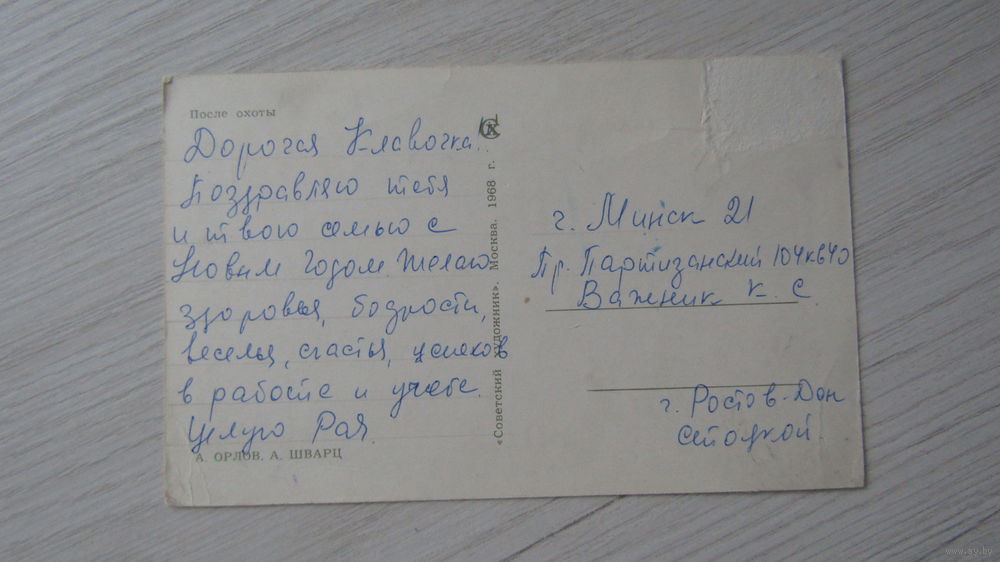 После охоты
Дорогая Клавочка.
Поздравляю тебя
и твою семью с
Новым Годом. Желаю
здоровья, бодрости,
веселья, счастья, успехов
в работе и учебе.
Целую Рая.
А. ОРЛОВ, А. ШВАРЦ
«Советский художник». Москва. 1968 г.
г. Минск 21
Пр. Партизанский 104 кв 40
Важник К. С.
г. Ростов-Дон
www.ay.by